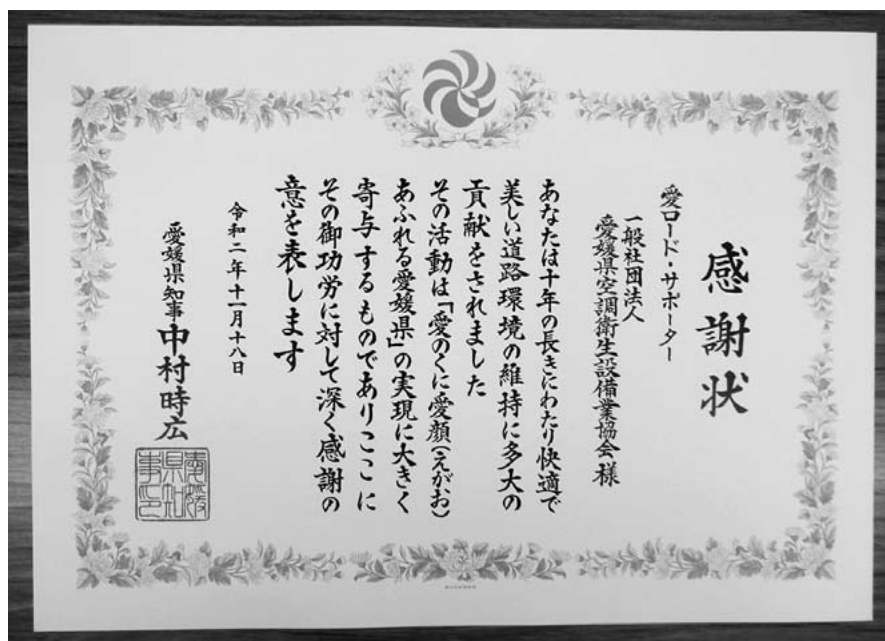 感謝状
愛ロード・サポーター
一般社団法人
愛媛県空調衛生設備業協会 様
あなたは十年の長きにわたり快適で
美しい道路環境の維持に多大の
貢献をされました
その活動は「愛のくに愛顔(えがお)
あふれる愛媛県」の実現に大きく
寄与するものでありここに
その御功労に対して深く感謝の
意を表します
令和二年十一月十八日
愛媛県知事 中村時広
愛媛
県知
事印